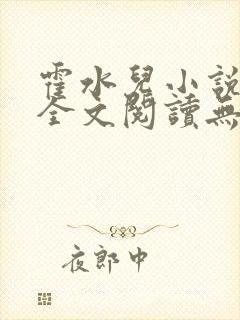 霍水兒小說
全文閱讀無
夜郎中